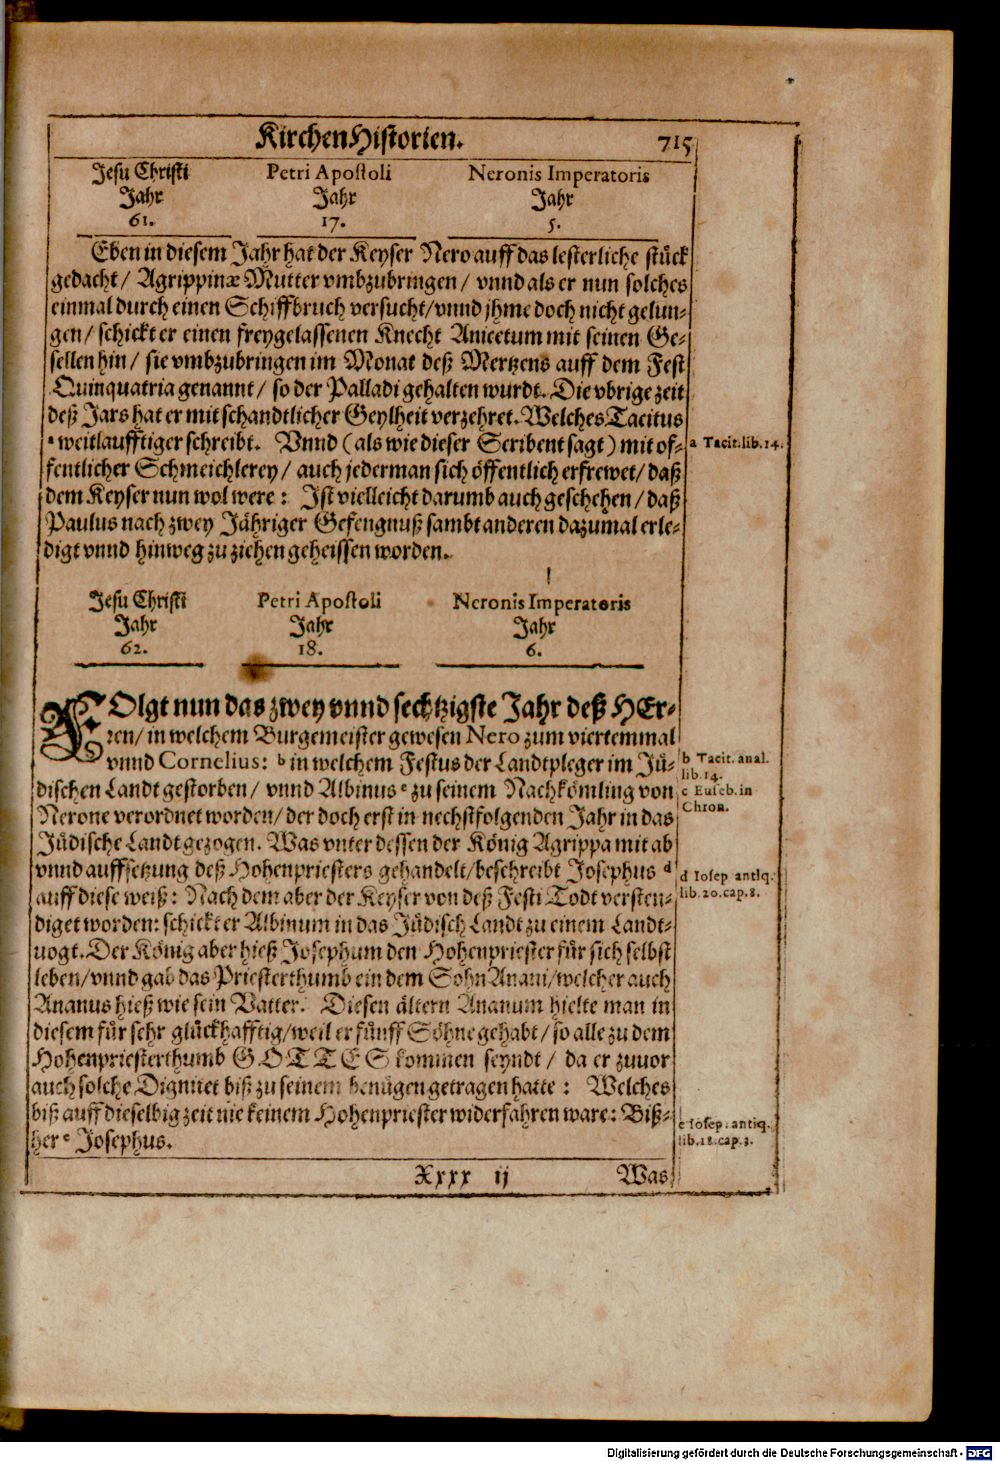 KirchenHistorien. 715
Jesu Christi Petri Apostoli Neronis Imperatoris
Jahr Jahr Jahr
61. 17. 5.
Eben in diesem Jahr hat der Keyser Nero auff das lesterliche stück
gedacht / Agrippinæ Mutter vmbzubringen / vnnd als er nun solches
einmal durch einen Schiffbruch versucht/vnnd jhme doch nicht gelun-
gen / schickt er einen freygelassenen Knecht Anicetum mit seinen Ge-
sellen hin / sie vmbzubringen im Monat deß Mertzens auff dem Fest
Quinquatria genannt / so der Palladi gehalten wurdt. Die vbrige zeit
deß Jars hat er mit schandtlicher Geylheit verzehret. Welches Tacitus
a weitlaufftiger schreibt. Vnnd (als wie dieser Scribent sagt) mit of-
a Tacit. lib. 14.
fentlicher Schmeichlerey / auch jederman sich öffentlich erfrewet / daß
dem Keyser nun wol were : Ist vielleicht darumb auch geschehen / daß
Paulus nach zwey Jähriger Gefengnuß sambt anderen dazumal erle-
digt vnnd hinweg zu ziehen geheissen worden.
Jesu Christi Petri Apostoli Neronis Imperatoris
Jahr Jahr Jahr
62. 18. 6.
FOlgt nun das zwey vnnd sechtzigste Jahr deß HEr-
ren/ in welchem Burgemeister gewesen Nero zum viertemmal
vnnd Cornelius: b in welchem Festus der Landtpfleger im Jü-
b Tacit. anal.
lib. 14.
dischen Landt gestorben / vnnd Albinus c zu seinem Nachkömling von
c Euseb. in
Chron.
Nerone verordnet worden/ der doch erst in nechstfolgenden Jahr in das
Jüdische Landt gezogen. Was vnter dessen der König Agrippa mit ab
vnnd auffsetzung deß Hohenpriesters gehandelt/beschreibt Josephus d
d Iosep antiq.
lib. 20. cap. 8.
auff diese weiß: Nach dem aber der Keyser von deß Festi Todt versten-
diget worden: schickt er Albinum in das Jüdisch Landt zu einem Landt-
uogt. Der König aber hieß Josephum den Hohenpriester für sich selbst
leben/vnnd gab das Priesterthumb ein dem Sohn Anani/welcher auch
Ananus hieß wie sein Vatter. Diesen ältern Ananum hielte man in
diesem für sehr glückhafftig/weil er fünff Söhne gehabt / so alle zu dem
Hohenpriesterthumb GOTTES kommen seyndt / da er zuuor
auch solche Dignitet biß zu seinem benügen getragen hatte : Welches
biß auff dieselbig zeit nie keinem Hohenpriester widerfahren ware: Biß-
her e Josephus.
e Iosep. antiq.
lib. 18. cap. 3.
Xxxx ij Was
Digitalisierung gefördert durch die Deutsche Forschungsgemeinschaft - DFG